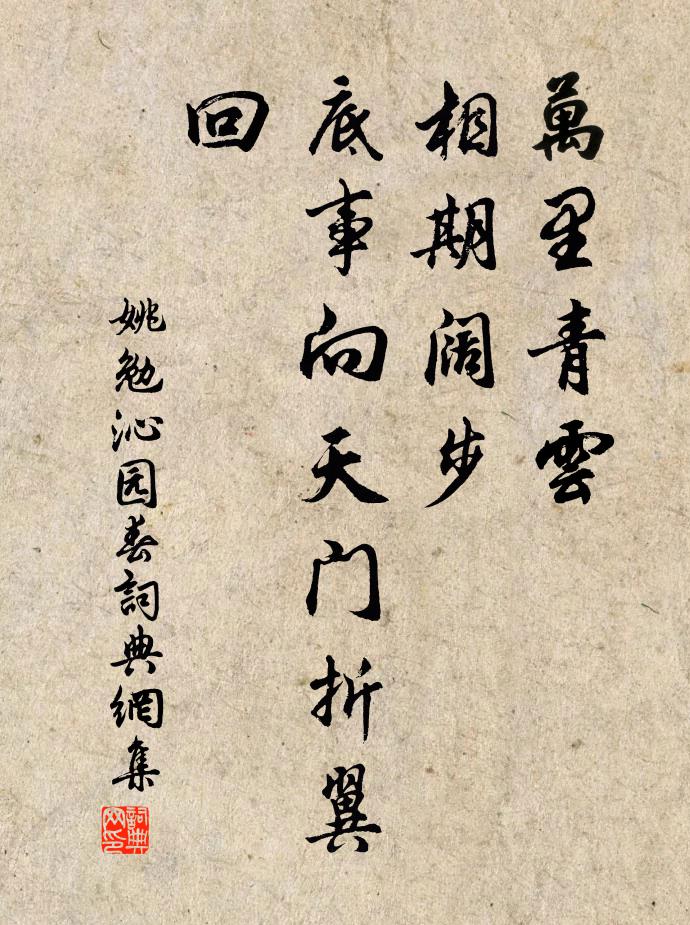 萬里青雲
相期阔步
底事向天门折翼
回
姚勉沁园春詞典網集
詞典
网印